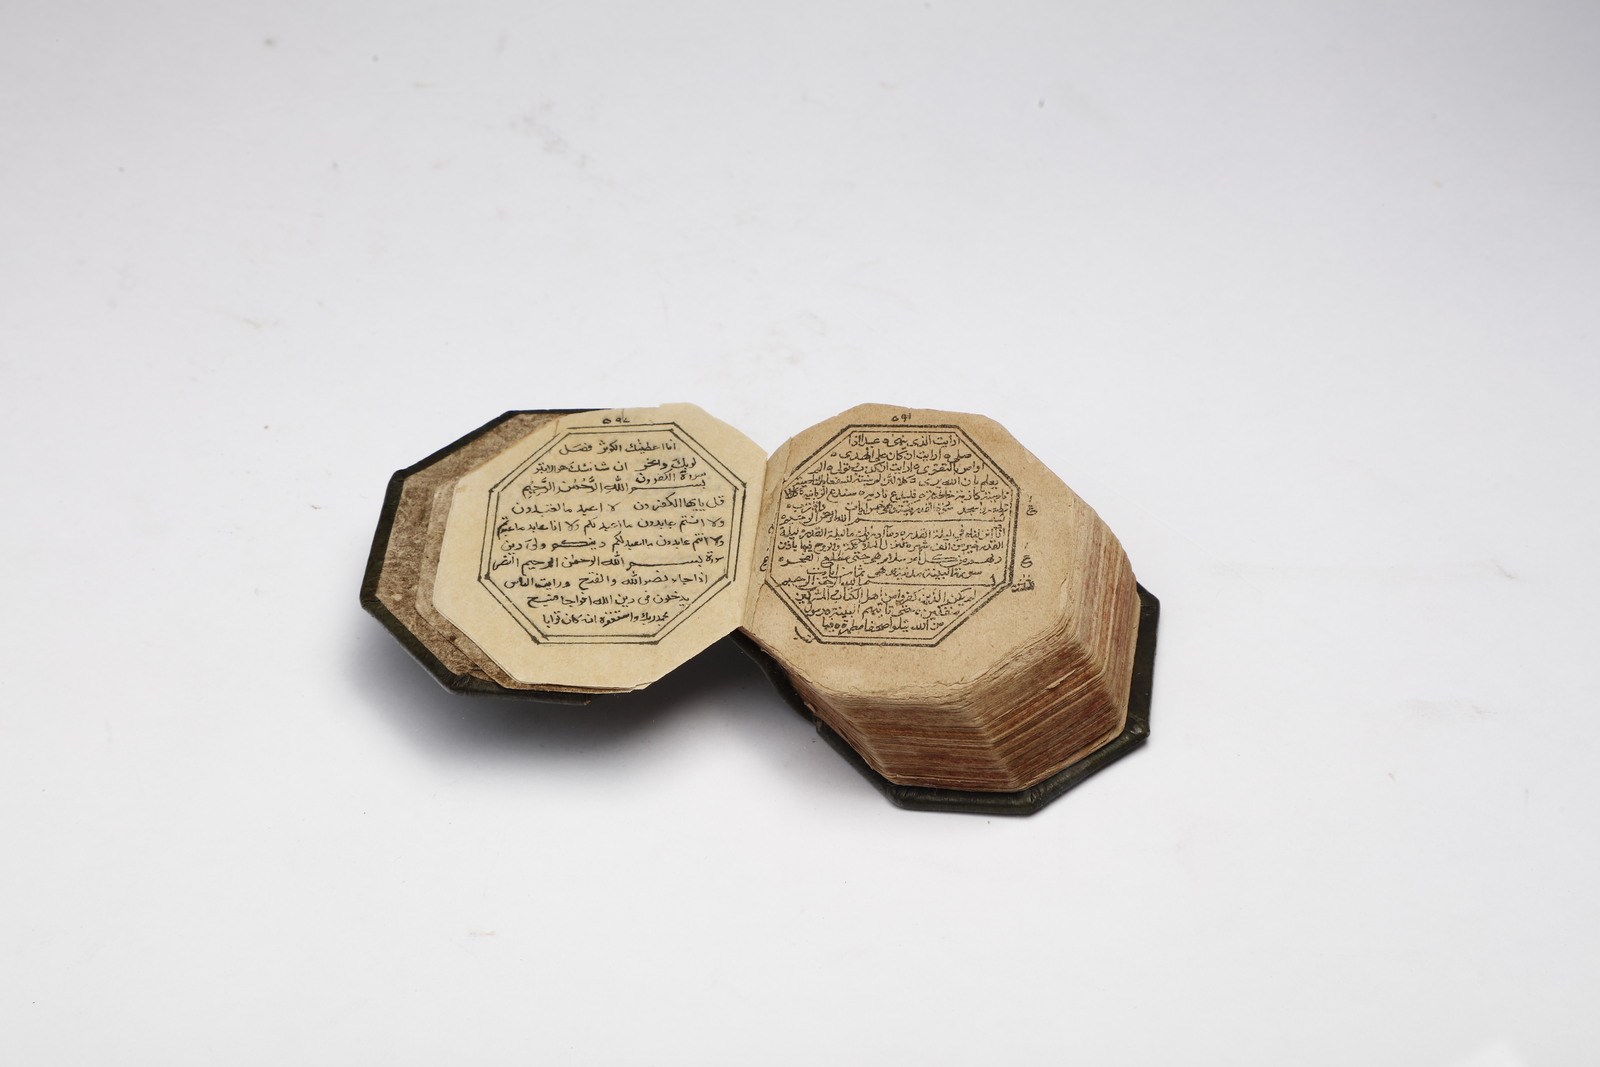 ٥٩١
ارايت الذى ينهى عبدا اذا
صلى ارايت ان كان على الهدى
او امر بالتقوى ارايت ان كذب وتولى الم
يعلم بان الله يرى كلا لئن لم ينته لنسفعا بالناصية
ناصية كاذبة خاطئة فليدع ناديه سندع الزبانية كلا
بســـم الله الرحمن الرحيم
انا انزلناه فى ليلة القدر وما ادريك ما ليلة القدر ليلة
القدر خير من الف شهر تنزل الملئكة والروح فيها باذن
ربهم من كل امر سلام هى حتى مطلع الفجر
سورة البينة مدنية وهى ثمان ايات
بســـم الله الرحمن الرحيم
لم يكن الذين كفروا من اهل الكتاب والمشركين
منفكين حتى تاتيهم البينة رسول
من الله يتلوا صحفا مطهرة فيها
٥٩٧
انا اعطينك الكوثر فصل
لربك وانحر ان شانئك هو الابتر
سورة الكفرون
بســـم الله الرَّحْمٰن الرَّحيم
قل يايها الكفرون لا اعبد ما تعبدون
ولا انتم عابدون ما اعبد ولا انا عابد ما عبدتم
ولا انتم عابدون ما اعبد لكم دينكم ولى دين
سورة بســـم الله الرحمن الرحيم النصر
اذا جاء نصر الله والفتح ورايت الناس
يدخلون فى دين الله افواجا فسبح
بحمد ربك واستغفره انه كان توابا